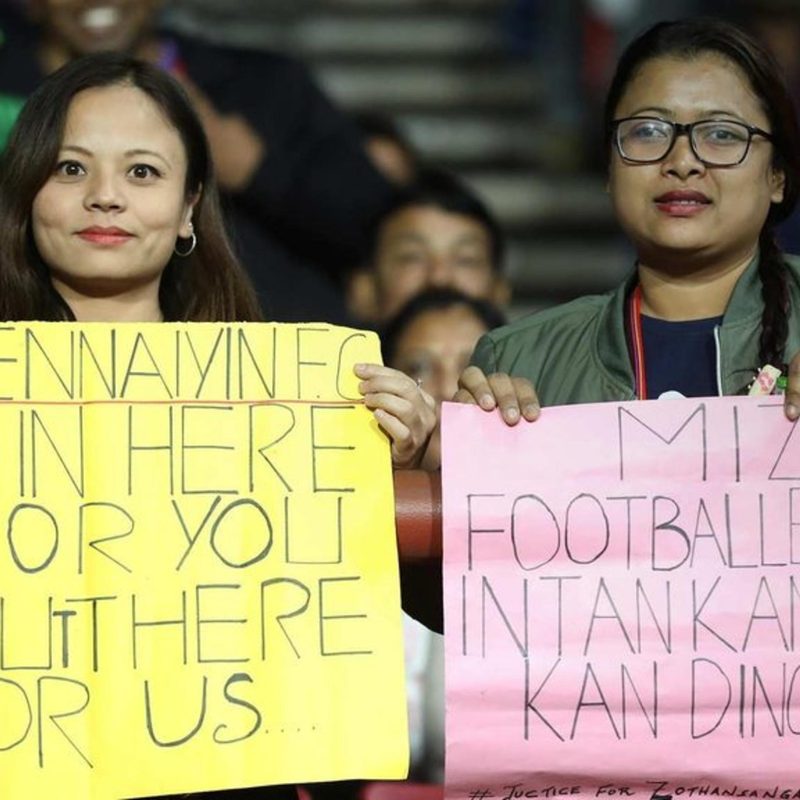 ENNAIYIN F.C
IN HERE
OR YOU
UTTHERE
OR US....
MIZ
FOOTBALLE
INTANKAN
KAN DING
# JUCTICE FOR ZOTHANSANGA